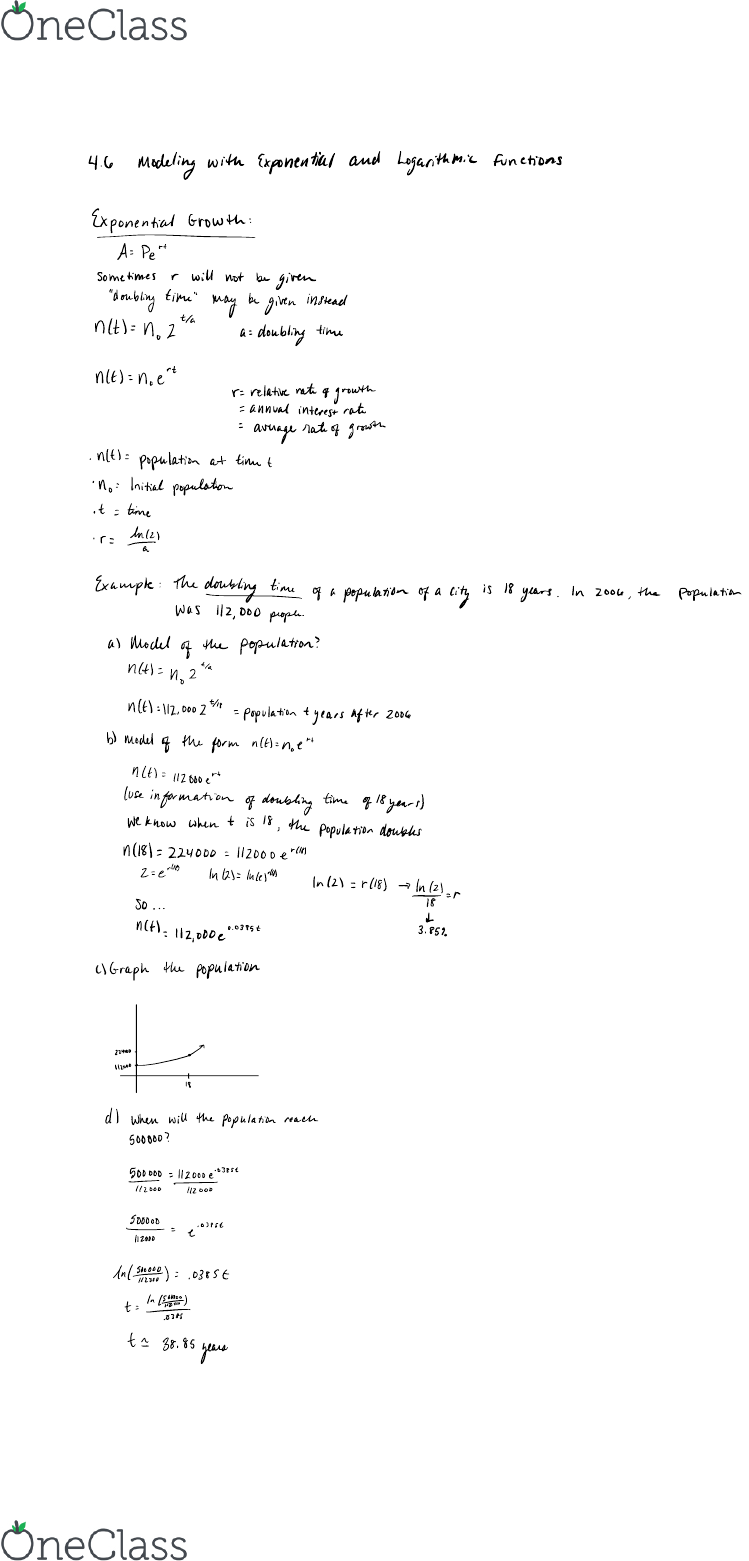 OneClass
4.6 Modeling with Exponential and Logarithmic Functions
Exponential Growth:
A = Pe^rt
Sometimes r will not be given
"doubling time" may be given instead
n(t) = n₀ 2^t/a a = doubling time
n(t) = n₀ e^rt
r = relative rate of growth
= annual interest rate
= average rate of growth
· n(t) = population at time t
· n₀ = Initial population
· t = time
· r = ln(2)/a
Example: The doubling time of a population of a city is 18 years. In 2006, the population
was 112,000 people.
a) Model of the population?
n(t) = n₀ 2^t/a
n(t) = 112,000 2^t/18 = population t years After 2006
b) Model of the form n(t) = n₀e^rt
n(t) = 112000e^rt
(use information of doubling time of 18 years)
We know when t is 18, the population doubles
n(18) = 224000 = 112000 e^r(18)
2 = e^r(18) ln(2) = ln(e)^r(18) ln(2) = r(18) → ln(2)/18 = r
↓
3.85%
So ...
n(t) = 112,000e^0.0385t
c) Graph the population
112000
18
d) When will the population reach
500000?
500000/112000 = 112000e^.0385t/112000
500000/112000 = e^.0385t
ln(500000/112000) = .0385t
t = ln(500000/112000)/.0385
t ≃ 38.85 years
OneClass